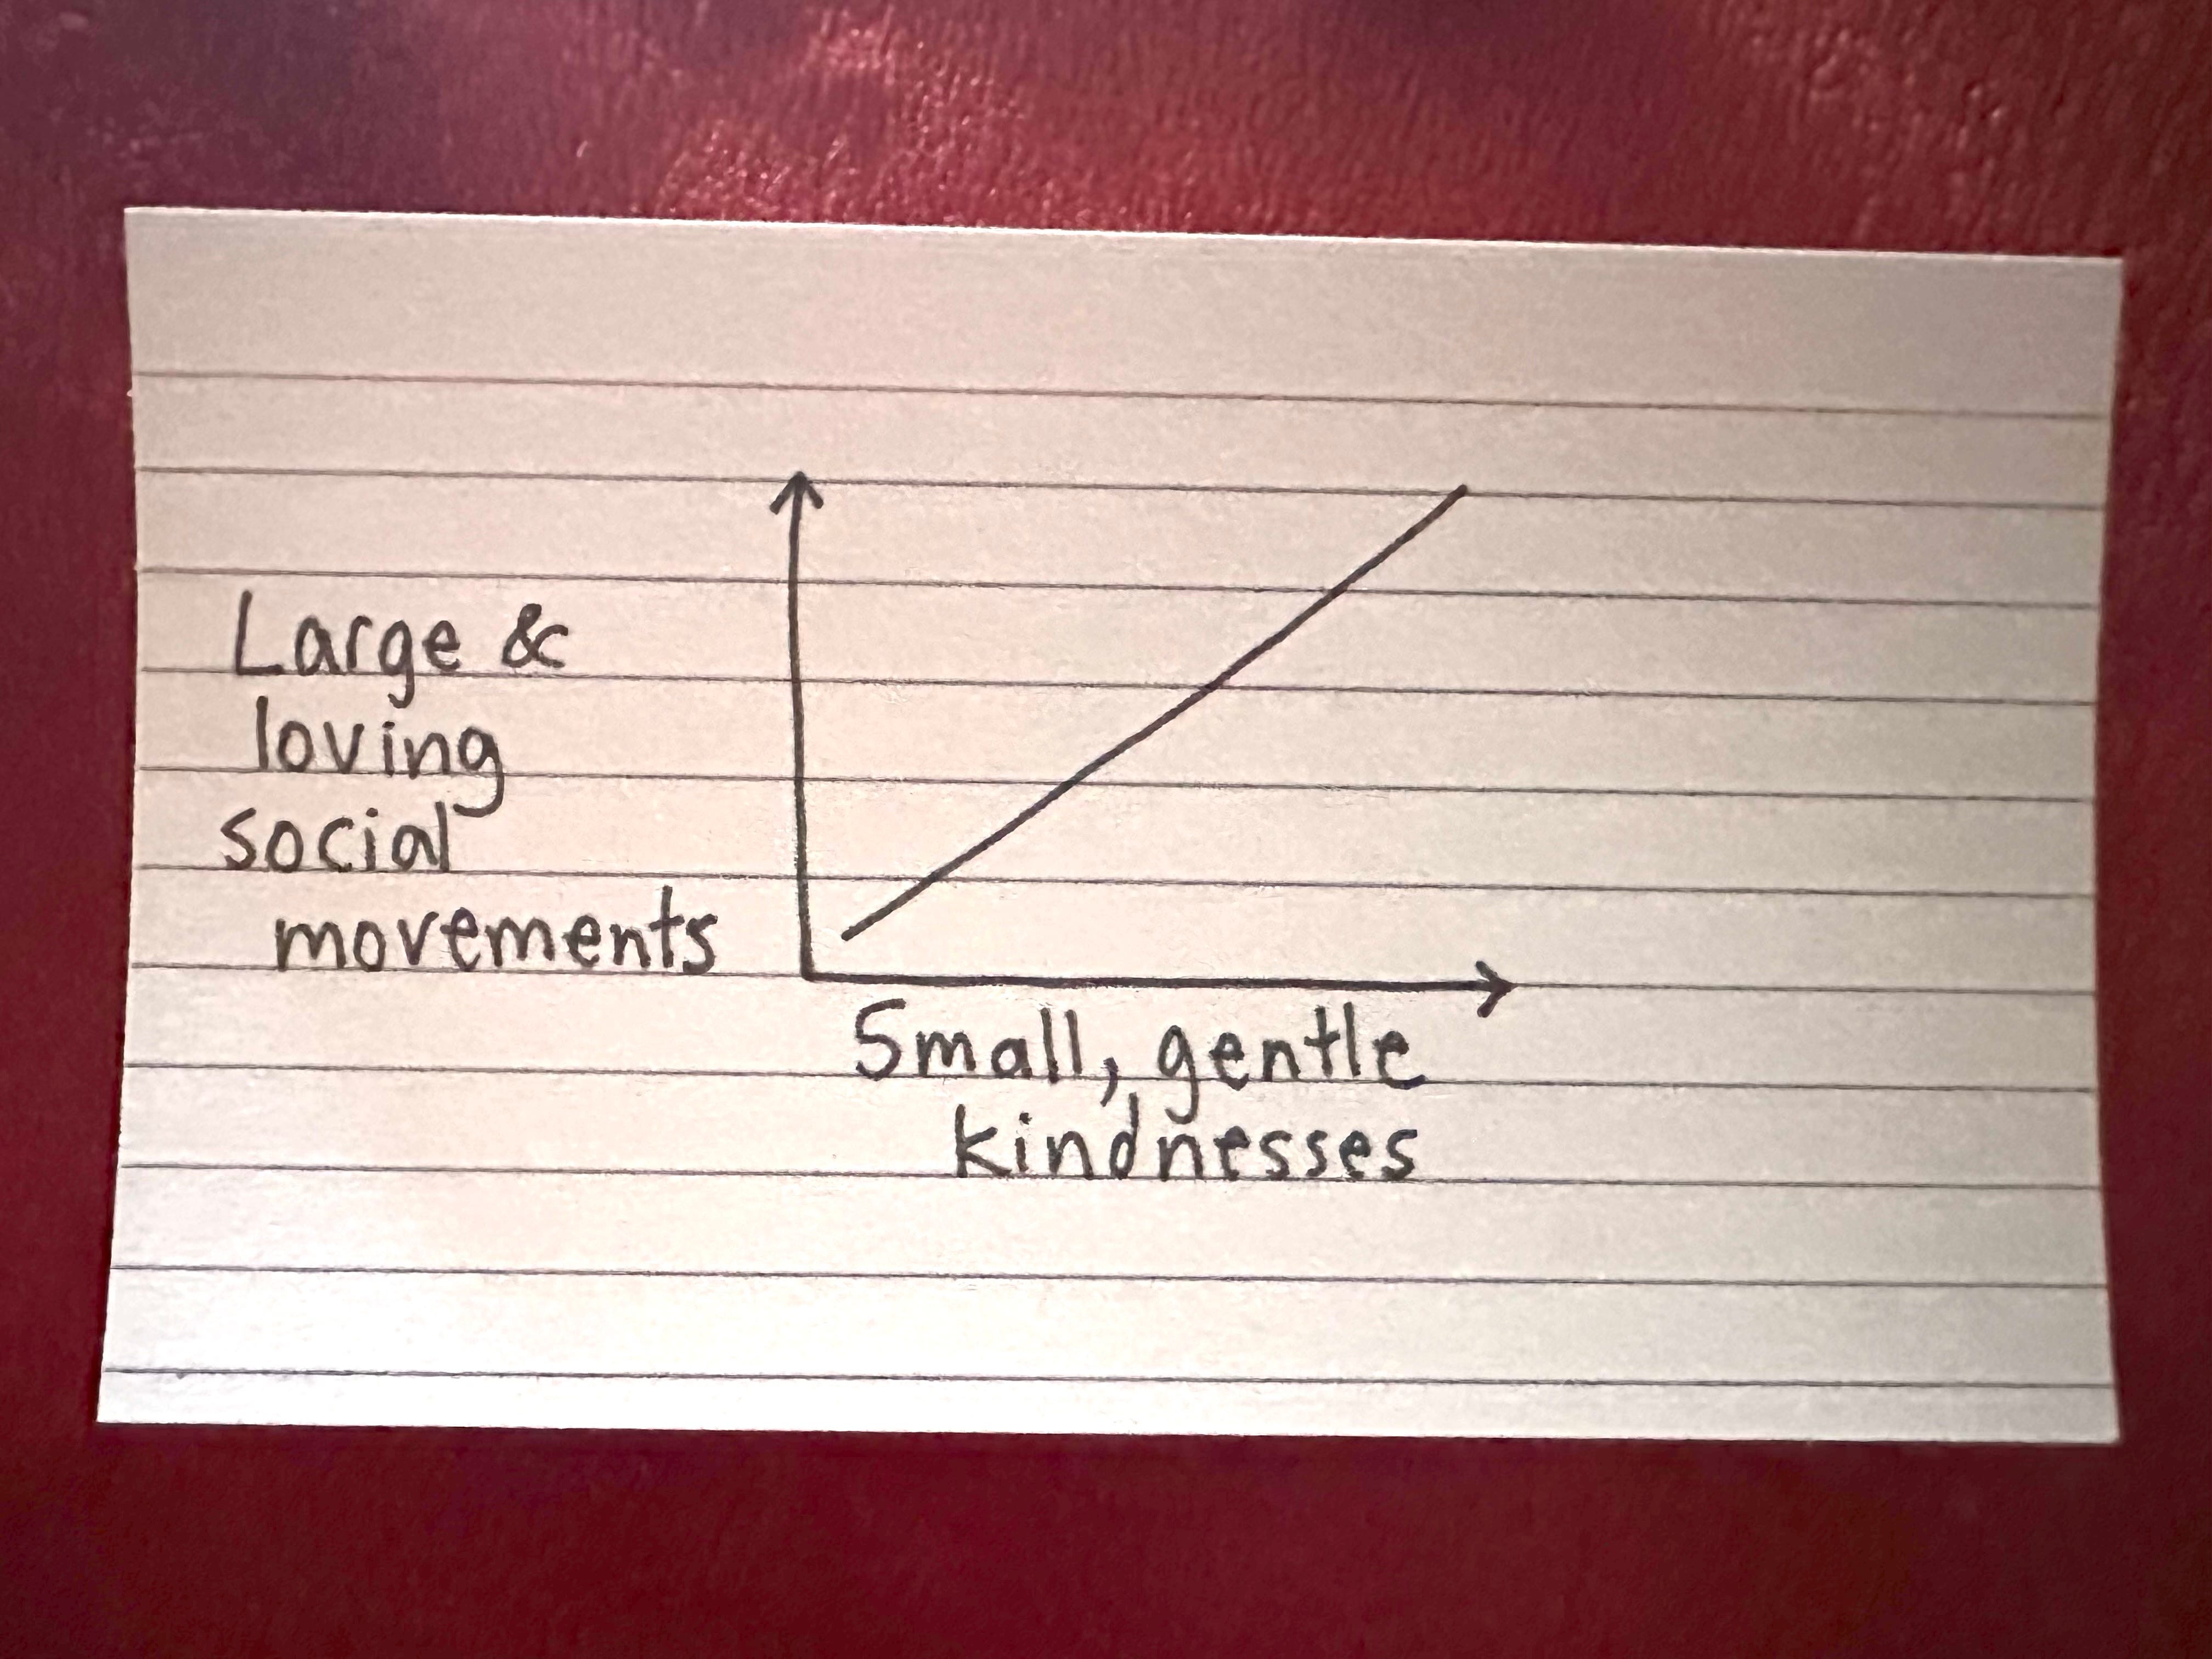 Large &
loving
social
movements
Small, gentle
kindnesses